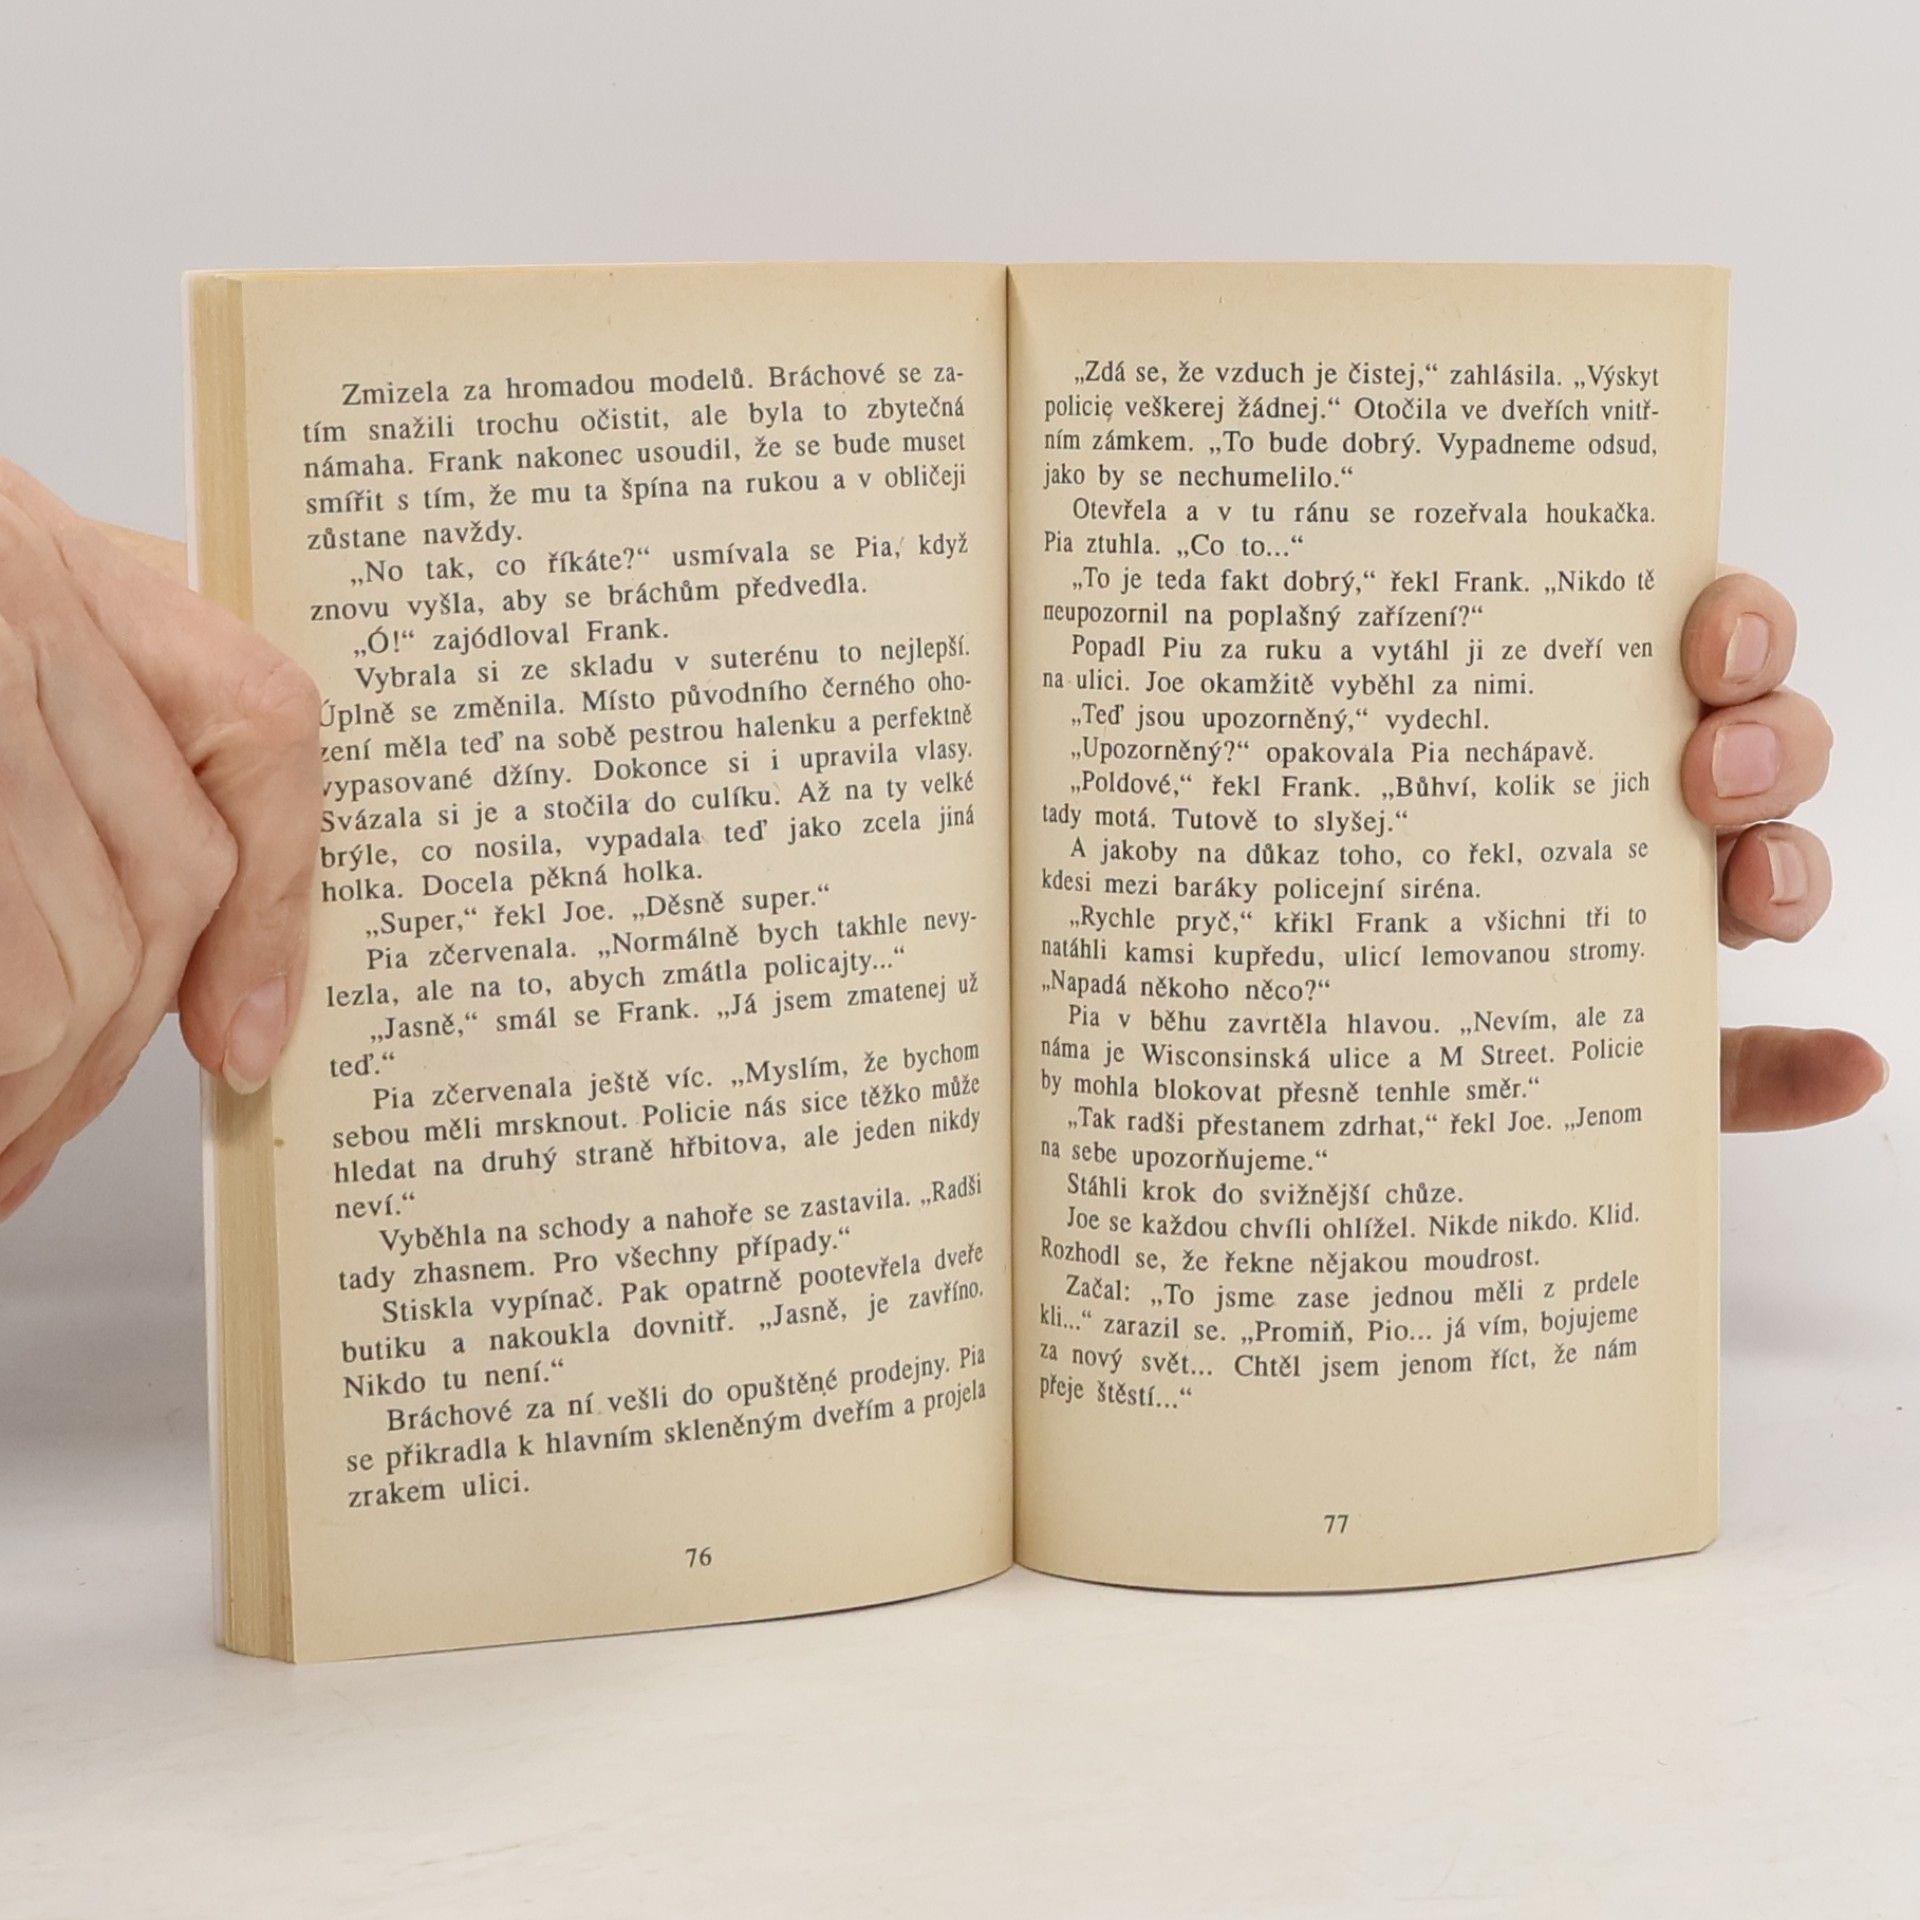 Zmizela za hromadou modelů. Bráchové se za-
tím snažili trochu očistit, ale byla to zbytečná
námaha. Frank nakonec usoudil, že se bude muset
smířit s tím, že mu ta špína na rukou a v obličeji
zůstane navždy.
„No tak, co říkáte?“ usmívala se Pia, když
znovu vyšla, aby se bráchům předvedla.
„Ó!“ zajódloval Frank.
Vybrala si ze skladu v suterénu to nejlepší.
Úplně se změnila. Místo původního černého oho-
zení měla teď na sobě pestrou halenku a perfektně
vypasované džíny. Dokonce si i upravila vlasy.
Svázala si je a stočila do culíku. Až na ty velké
brýle, co nosila, vypadala teď jako zcela jiná
holka. Docela pěkná holka.
„Super,“ řekl Joe. „Děsně super.“
Pia zčervenala. „Normálně bych takhle nevy-
lezla, ale na to, abych zmátla policajty...“
„Jasně,“ smál se Frank. „Já jsem zmatenej už
teď.“
Pia zčervenala ještě víc. „Myslím, že bychom
sebou měli mrsknout. Policie nás sice těžko může
hledat na druhý straně hřbitova, ale jeden nikdy
neví.“
Vyběhla na schody a nahoře se zastavila. „Radši
tady zhasnem. Pro všechny případy.“
Stiskla vypínač. Pak opatrně pootevřela dveře
butiku a nakoukla dovnitř. „Jasně, je zavříno.
Nikdo tu není.“
Bráchové za ní vešli do opuštěné prodejny. Pia
se přikradla k hlavním skleněným dveřím a projela
zrakem ulici.
76
„Zdá se, že vzduch je čistej,“ zahlásila. „Výskyt
policie veškerej žádnej.“ Otočila ve dveřích vnitř-
ním zámkem. „To bude dobrý. Vypadneme odsud,
jako by se nechumelilo.“
Otevřela a v tu ránu se rozeřvala houkačka.
Pia ztuhla. „Co to...“
„To je teda fakt dobrý,“ řekl Frank. „Nikdo tě
neupozornil na poplašný zařízení?“
Popadl Piu za ruku a vytáhl ji ze dveří ven
na ulici. Joe okamžitě vyběhl za nimi.
„Teď jsou upozorněný,“ vydechl.
„Upozorněný?“ opakovala Pia nechápavě.
„Poldové,“ řekl Frank. „Bůhví, kolik se jich
tady motá. Tutově to slyšej.“
A jakoby na důkaz toho, co řekl, ozvala se
kdesi mezi baráky policejní siréna.
„Rychle pryč,“ křikl Frank a všichni tři to
natáhli kamsi kupředu, ulicí lemovanou stromy.
„Napadá někoho něco?“
Pia v běhu zavrtěla hlavou. „Nevím, ale za
náma je Wisconsinská ulice a M Street. Policie
by mohla blokovat přesně tenhle směr.“
„Tak radši přestanem zdrhat,“ řekl Joe. „Jenom
na sebe upozorňujeme.“
Stáhli krok do svižnější chůze.
Joe se každou chvíli ohlížel. Nikde nikdo. Klid.
Rozhodl se, že řekne nějakou moudrost.
Začal: „To jsme zase jednou měli z prdele
kli...“ zarazil se. „Promiň, Pio... já vím, bojujeme
za nový svět... Chtěl jsem jenom říct, že nám
přeje štěstí...“
77